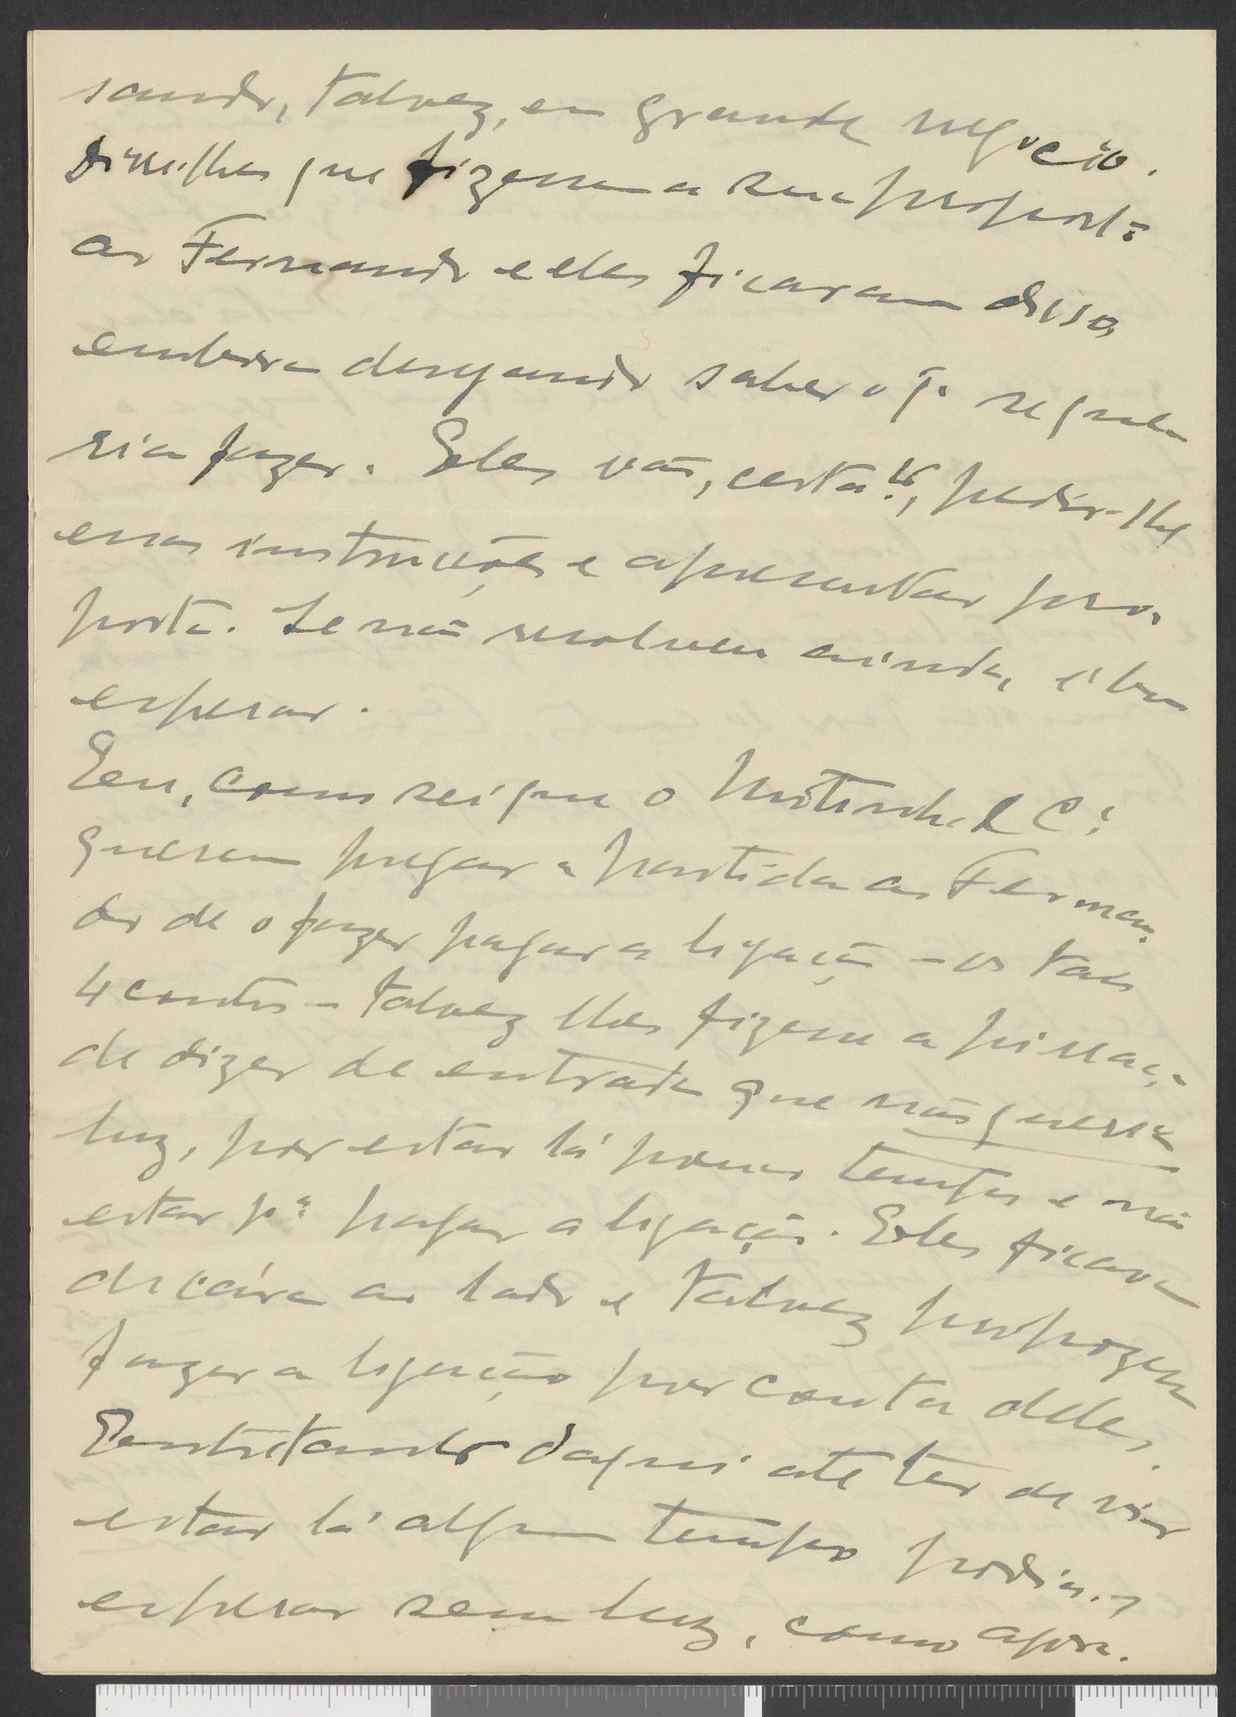 sando, talvez, em grande negocio.
Disse-lhes que fizessem a sua propost.ª
ao Fernando e eles ficaram disso,
embora desejando saber o q. se quere-
ria fazer. Eles vão, certa.te, pedir-lhe
essas instruções e apresentar pro-
posta. Se não resolveu ainda, é bom
esperar.
Eu, como sei que o & C.ª
querem pregar a partida ao Fernan-
do de o fazer pagar a ligação – os taes
4 contos – talvez lhes fizesse a pirraça
de dizer de entrada que não queria
luz, por estar lá pouco tempo e não
estar p.ª pagar a ligação. Eles ficava
de cára ao lado e talvez propozessem
fazer a ligação por conta deles.
Entretando daqui até ter de vir
estar lá algum tempo podia-se
esperar sem luz, como agora.